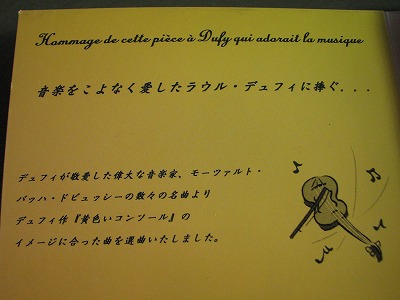 Hommage de cette pièce à Dufy qui adorait la musique
音楽をこよなく愛したラウル・デュフィに捧ぐ...
デュフィが敬愛した偉大な音楽家、モーツァルト・
バッハ・ドビュッシーの数々の名曲より
デュフィ作『黄色いコンソール』の
イメージに合った曲を選曲いたしました。